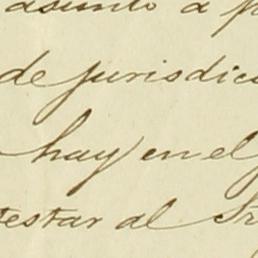 asunto a p
de jurisdicc
hay en el
testar al Sr